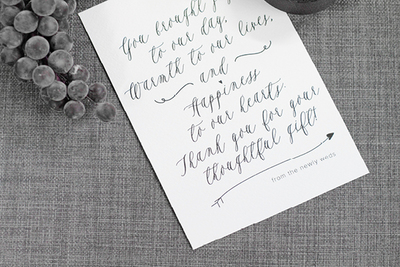 You brought joy
to our day,
Warmth to our lives,
and
Happiness
to our hearts.
Thank you for your
thoughtful gift!
from the newly weds